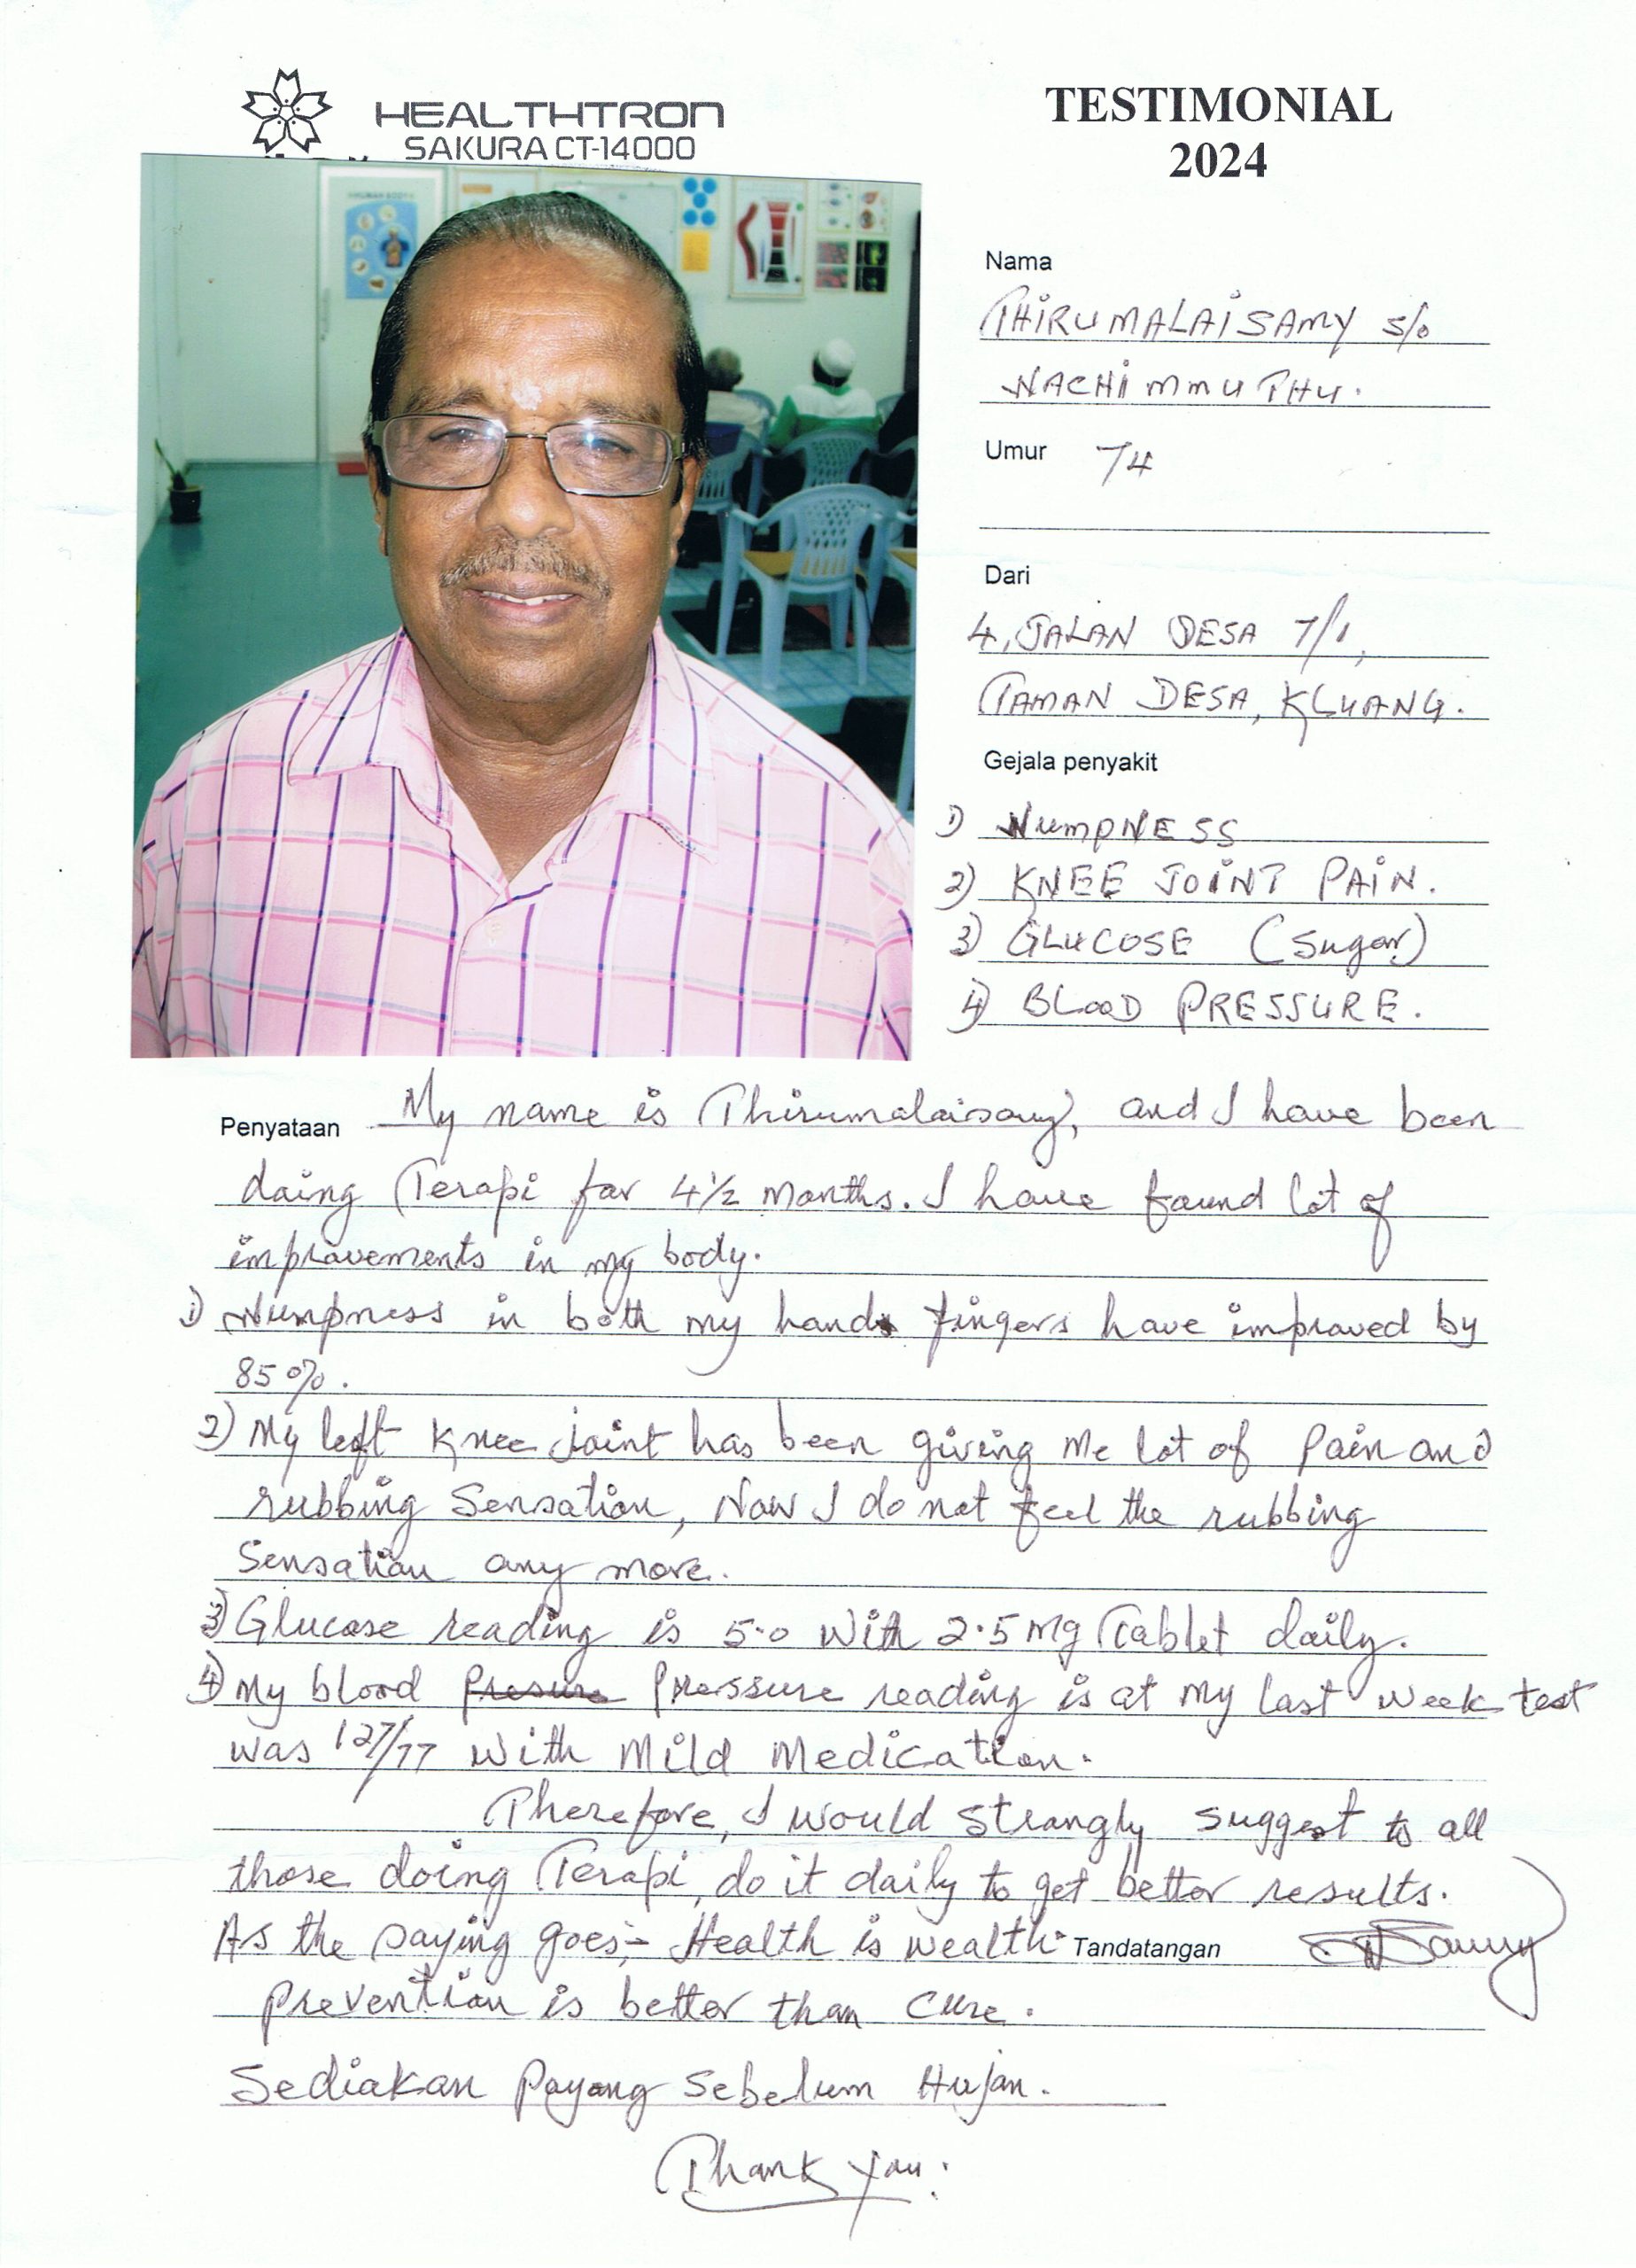 HEALTHTRON
SAKURA CT-14000
TESTIMONIAL
2024
Nama
THIRUMALAISAMY s/o
NACHIMMUTHU.
Umur 74
Dari
4, JALAN DESA 7/1,
TAMAN DESA, KLUANG.
Gejala penyakit
1) NUMPNESS
2) KNEE JOINT PAIN.
3) GLUCOSE (Sugar)
4) BLOOD PRESSURE.
Penyataan My name is Thirumalaisamy, and I have been
doing Terapi for 4½ months. I have found lot of
improvements in my body.
1) Numpness in both my hands fingers have improved by
85%.
2) My left knee joint has been giving me lot of pain and
rubbing sensation, Now I do not feel the rubbing
sensation any more.
3) Glucose reading is 5.0 with 2.5 mg Tablet daily.
4) My blood Presure Pressure reading is at my last week test
was 127/77 with Mild Medication.
Therefore, I would strongly suggest to all
those doing Terapi, do it daily to get better results.
As the saying goes:- Health is wealth. Tandatangan
Prevention is better than cure.
Sediakan Payong Sebelum Hujan.
Thank you.